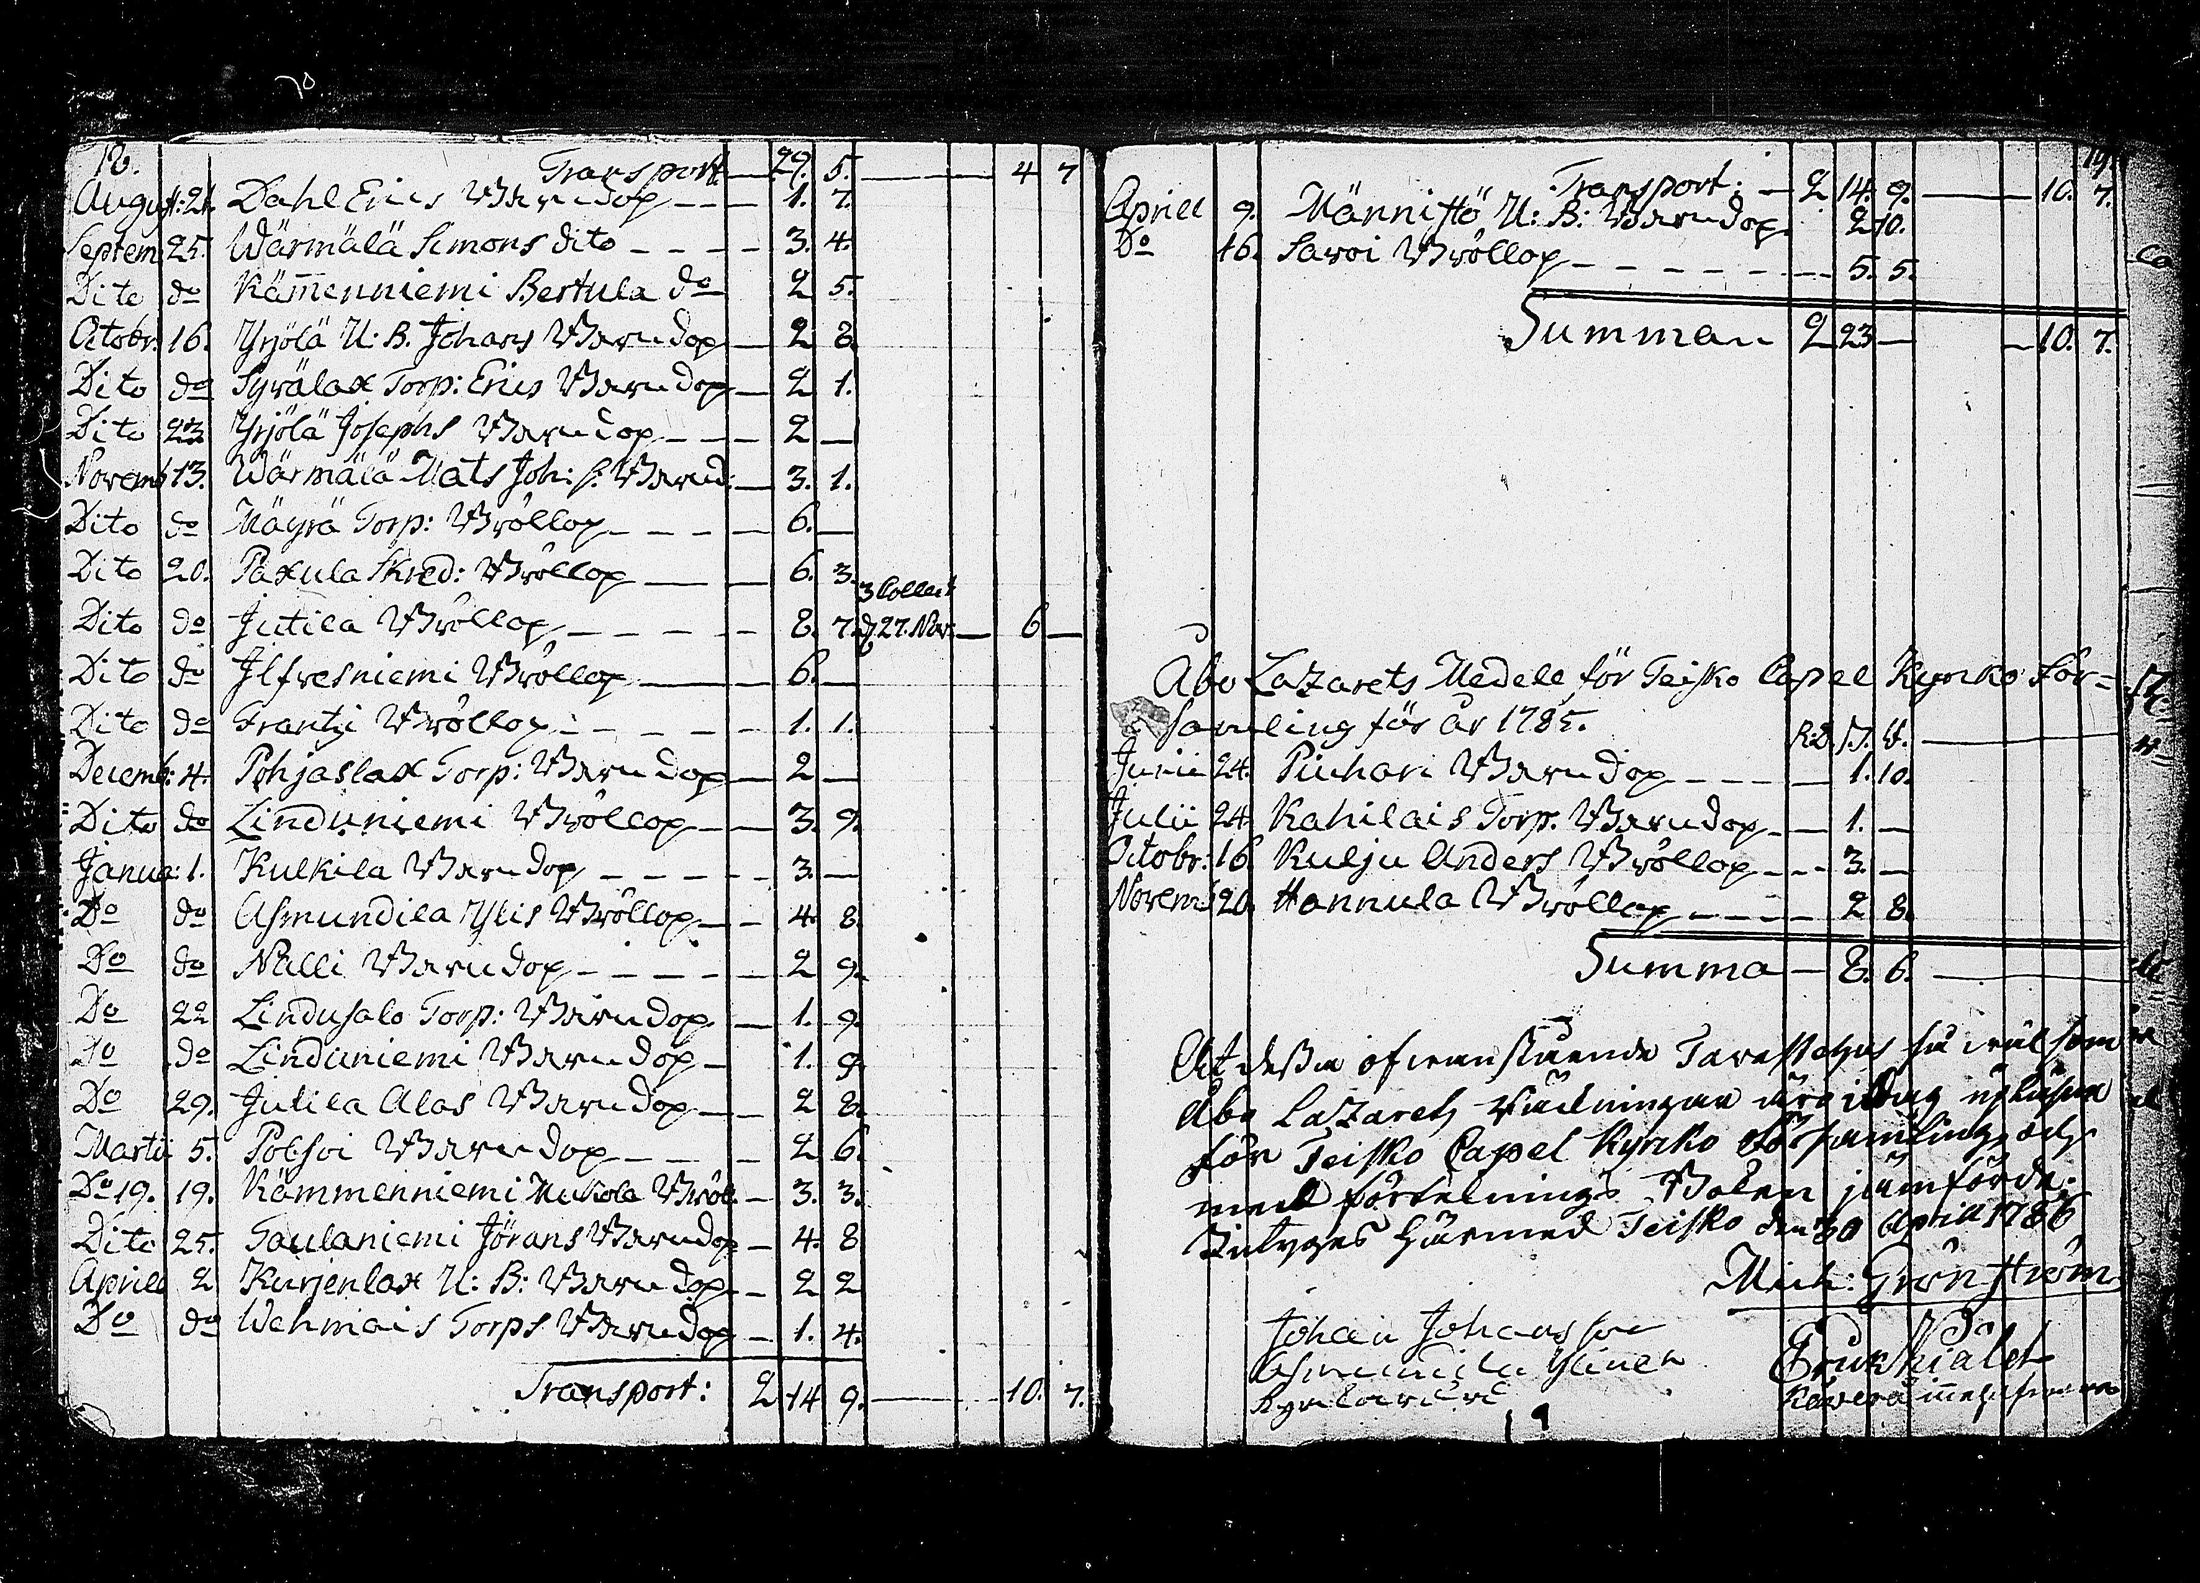 70.
18.
Transport — 29. 5. — 4 7
August: 21. Dahl Erics Barndop — 1. 7.
Septem: 25. Wärmälä Simons dito — 3. 4.
Dito do Käm̅enniemi Bertula do 2 5.
Octobr: 16. Yrjölä U: B. Johans Barndop — 2 8.
Dito do Syvälax Torp: Erics Barndop — 2 1.
Dito 23 Yrjölä Josephs Barndop — 2 —
Novemb 13. Wärmälä Mats Joh: s. Barnd: — 3. 1.
Dito do Mäyrä Torp: Bröllop — 6. —
Dito 20. Paxula Skred: Bröllop — 6. 3.
3 Collect
Dito do Jutila Bröllop — 8. 7. d 27. Nov. — 6 —
Dito do Ilfvesniemi Bröllop — 6. —
Dito do Frantzi Bröllop — 1. 1.
Decemb: 4. Pohjaslax Torp: Barndop — 2 —
Dito do Linduniemi Bröllop — 3. 9.
Janua: 1. Kulkila Barndop — 3. —
Do do Asmundila Ylis Bröllop — 4. 8.
Do do Nälli Barndop — 2 9.
Do 22 Lindusalo Torp: Barndop — 1. 9.
Do do Linduniemi Barndop — 1. 9.
Do 29. Jutila Alas Barndop — 2 8.
Martii 5. Pohtoi Barndop — 2 6.
Do 19. 19. Kämmenniemi Mickola Bröll — 3. 3.
Dito 25. Taulaniemi Jörans Barndop — 4. 8
Aprill 2 Kurjenlax U: B: Barndop — 2 2
Do do Wehmais Torps Barndop — 1. 4.
Transport: 2 14 9. — 10. 7.
19.
Transport: — 2 14. 9. — 10. 7.
Aprill 9. Männistö U: B: Barndop 2 10.
Do 16. Savoi Bröllop — 5. 5.
Summan 2 23 — — 10. 7.
Åbo Lazarets Medell för Teisko Capel Kyrko För=
samling för år 1785.
R:D. S. —
Junii 24. Piichari Barndop — 1. 10.
Julii 24 Kahilais Torp. Barndop — 1. —
Octobr: 16. Kulju Anders Bröllop — 3. —
Novemb 20. Hannula Bröllop — 2 8.
Summa — 8. 6. —
At desse ofvanstående Tavastehus så väl som
Åbo Lazarets Räkningar äro i dag upläsne
för Teisko Capel Kyrko Församling och
med förtekningsboken jämförde;
Intygas härmed Teisko den 30 Aprill 1786
Mich: Grönström
Johan Johansson
Asmundila Ylinen
Kyrkovärd